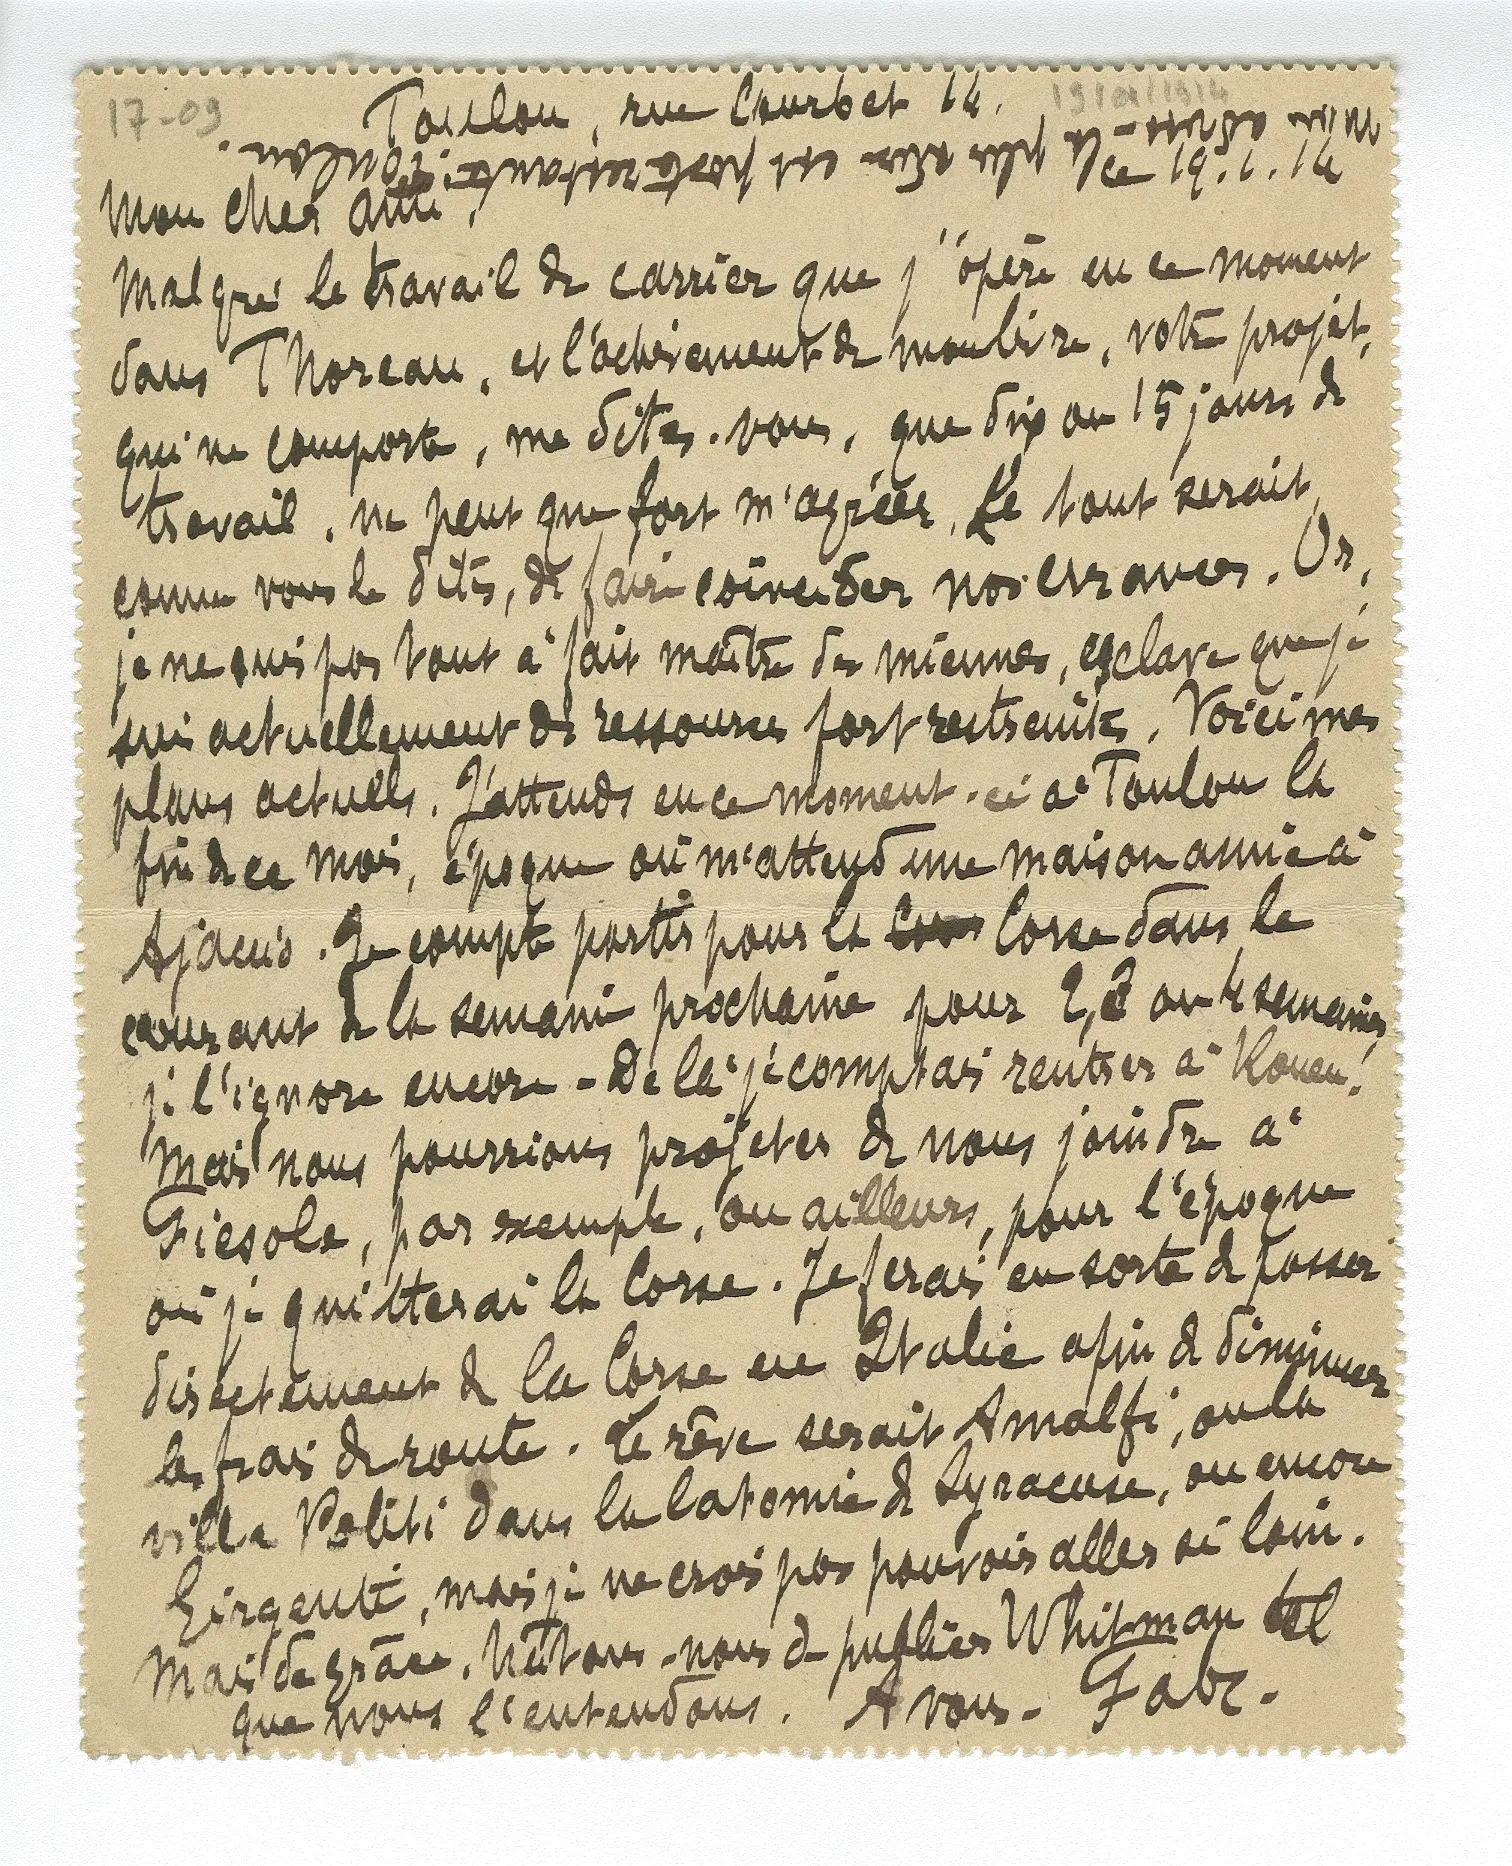 17-09
19/01/1914
Toulon, rue Courbet 14.
mon adresse la plus sûre est poste restante, Toulon.
ce 19.1.14
Mon cher ami,
Malgré le travail de carrier que j'opère en ce moment
dans Thoreau, et l'achèvement de moulire, votre projet,
qui ne comporte, me dites-vous, que dix ou 15 jours de
travail, ne peut que fort m'agréer. Le tout serait,
comme vous le dites, de faire coïncider nos errances. Or,
je ne suis pas tout à fait maître des miennes, esclave que je
suis actuellement de ressources fort restreintes. Voici mes
plans actuels. J'attends en ce moment-ci à Toulon la
fin de ce mois, époque où m'attend une maison amie à
Ajaccio. Je compte partir pour la Cors Corse dans le
courant de la semaine prochaine pour 2, 3 ou 4 semaines,
je l'ignore encore - De là je comptais rentrer à Rouen.
Mais nous pourrions projeter de nous joindre à
Fiesole, par exemple, ou ailleurs, pour l'époque
où je quitterai la Corse. Je ferais en sorte de passer
directement de la Corse en Italie afin de diminuer
les frais de route. Le rêve serait Amalfi, ou la
villa Politi dans la latomie de Syracuse, ou encore
Girgenti, mais je ne crois pas pouvoir aller si loin.
Mais de grâce, hâtons-nous de publier Whitman tel
que nous l'entendons. A vous - Fabz.